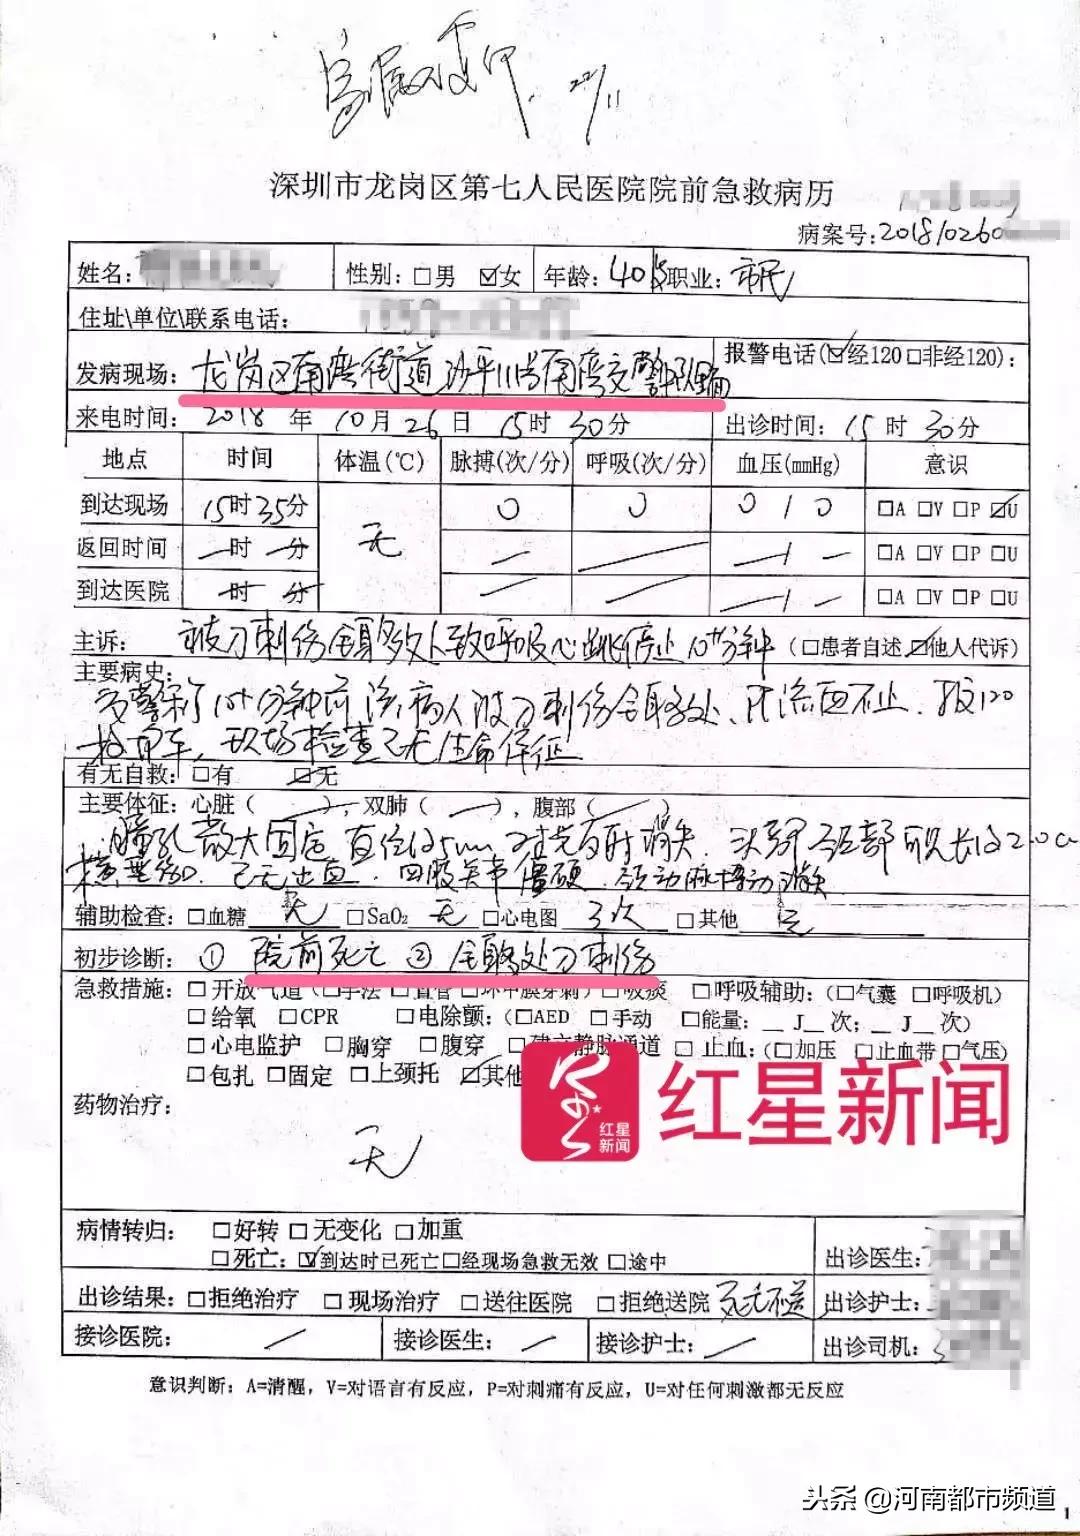 22/11
深圳市龙岗区第七人民医院院前急救病历
病案号:201810260
姓名: 性别: □男 ☑女 年龄: 40岁 职业: 市民
住址\单位\联系电话:
发病现场: 龙岗区南湾街道沙平11号南湾交警中队 报警电话(☑经120□非经120):
来电时间: 2018年10月26日15时30分 出诊时间: 15时30分
地点 时间 体温(℃) 脉搏(次/分) 呼吸(次/分) 血压(mmHg) 意识
到达现场 15时35分 无 0 0 0/0 □A □V □P ☑U
返回时间 —时—分 — — —/— □A □V □P □U
到达医院 —时—分 — — —/— □A □V □P □U
主诉: 被刀刺伤全身多处致呼吸心跳停止10+分钟 (□患者自述☑他人代诉)
主要病史:
交警 10+分钟前 病人被刀刺伤全身多处、流血不止、120
现场检查已无生命体征
有无自救: □有 ☑无
主要体征: 心脏( — ), 双肺( — ), 腹部( — )
瞳孔散大固定 直径约5mm 对光反射消失 颈部可见长约20c
已无出血 四肢关节僵硬 颈动脉搏动消失
辅助检查: □血糖 无 □SaO₂ 无 □心电图 3次 □其他 无
初步诊断: ① 院前死亡 ② 全身多处刀刺伤
急救措施: □开放气道(□手法 □置管 □环甲膜穿刺) □吸痰 □呼吸辅助: (□气囊 □呼吸机)
□给氧 □CPR □电除颤: (□AED □手动 □能量: __J__次; __J__次)
□心电监护 □胸穿 □腹穿 □建立静脉通道 □止血: (□加压 □止血带 □气压)
□包扎 □固定 □上颈托 ☑其他
红星新闻
红星新闻
药物治疗:
无
病情转归: □好转 □无变化 □加重
□死亡: ☑到达时已死亡□经现场急救无效 □途中
出诊医生:
出诊结果: □拒绝治疗 □现场治疗 □送往医院 □拒绝送院 死亡不送 出诊护士:
接诊医院: — 接诊医生: — 接诊护士: — 出诊司机:
意识判断: A=清醒, V=对语言有反应, P=对刺痛有反应, U=对任何刺激都无反应
头条 @河南都市频道
1